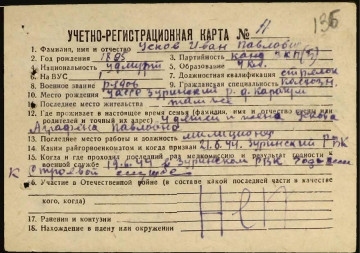 136
УЧЕТНО-РЕГИСТРАЦИОННАЯ КАРТА № 11
1. Фамилия, имя и отчество Усков Иван Павлович
2. Год рождения 1895 3. Партийность канд. ВКП(б)
4. Национальность удмурт 5. Образование 4 кл.
6. На ВУС 7. Должностная квалификация стрелок
8. Военное звание р-довой 9. Гражданская специальность
10. Место рождения УАССР Зуринский р.
11. Последнее место жительства там же
12. Где проживает в настоящее время семья (фамилия, имя и отчество жены или
родителей и точный их адрес) жена Ускова
Павловна
13. Последнее место работы и должность милиционер
14. Каким райгорвоенкоматом и когда призван 21.6.44 Зуринский РВК
15. Когда и где проходил последний раз медкомиссию и результат годности к
военной службе 19.6.44 Зуринском РВК Годен
к строевой службе
16. Участие в Отечественной войне (в составе какой последней части и
кого, когда) Нет
17. Ранения и контузии
18. Нахождение в плену или окружении